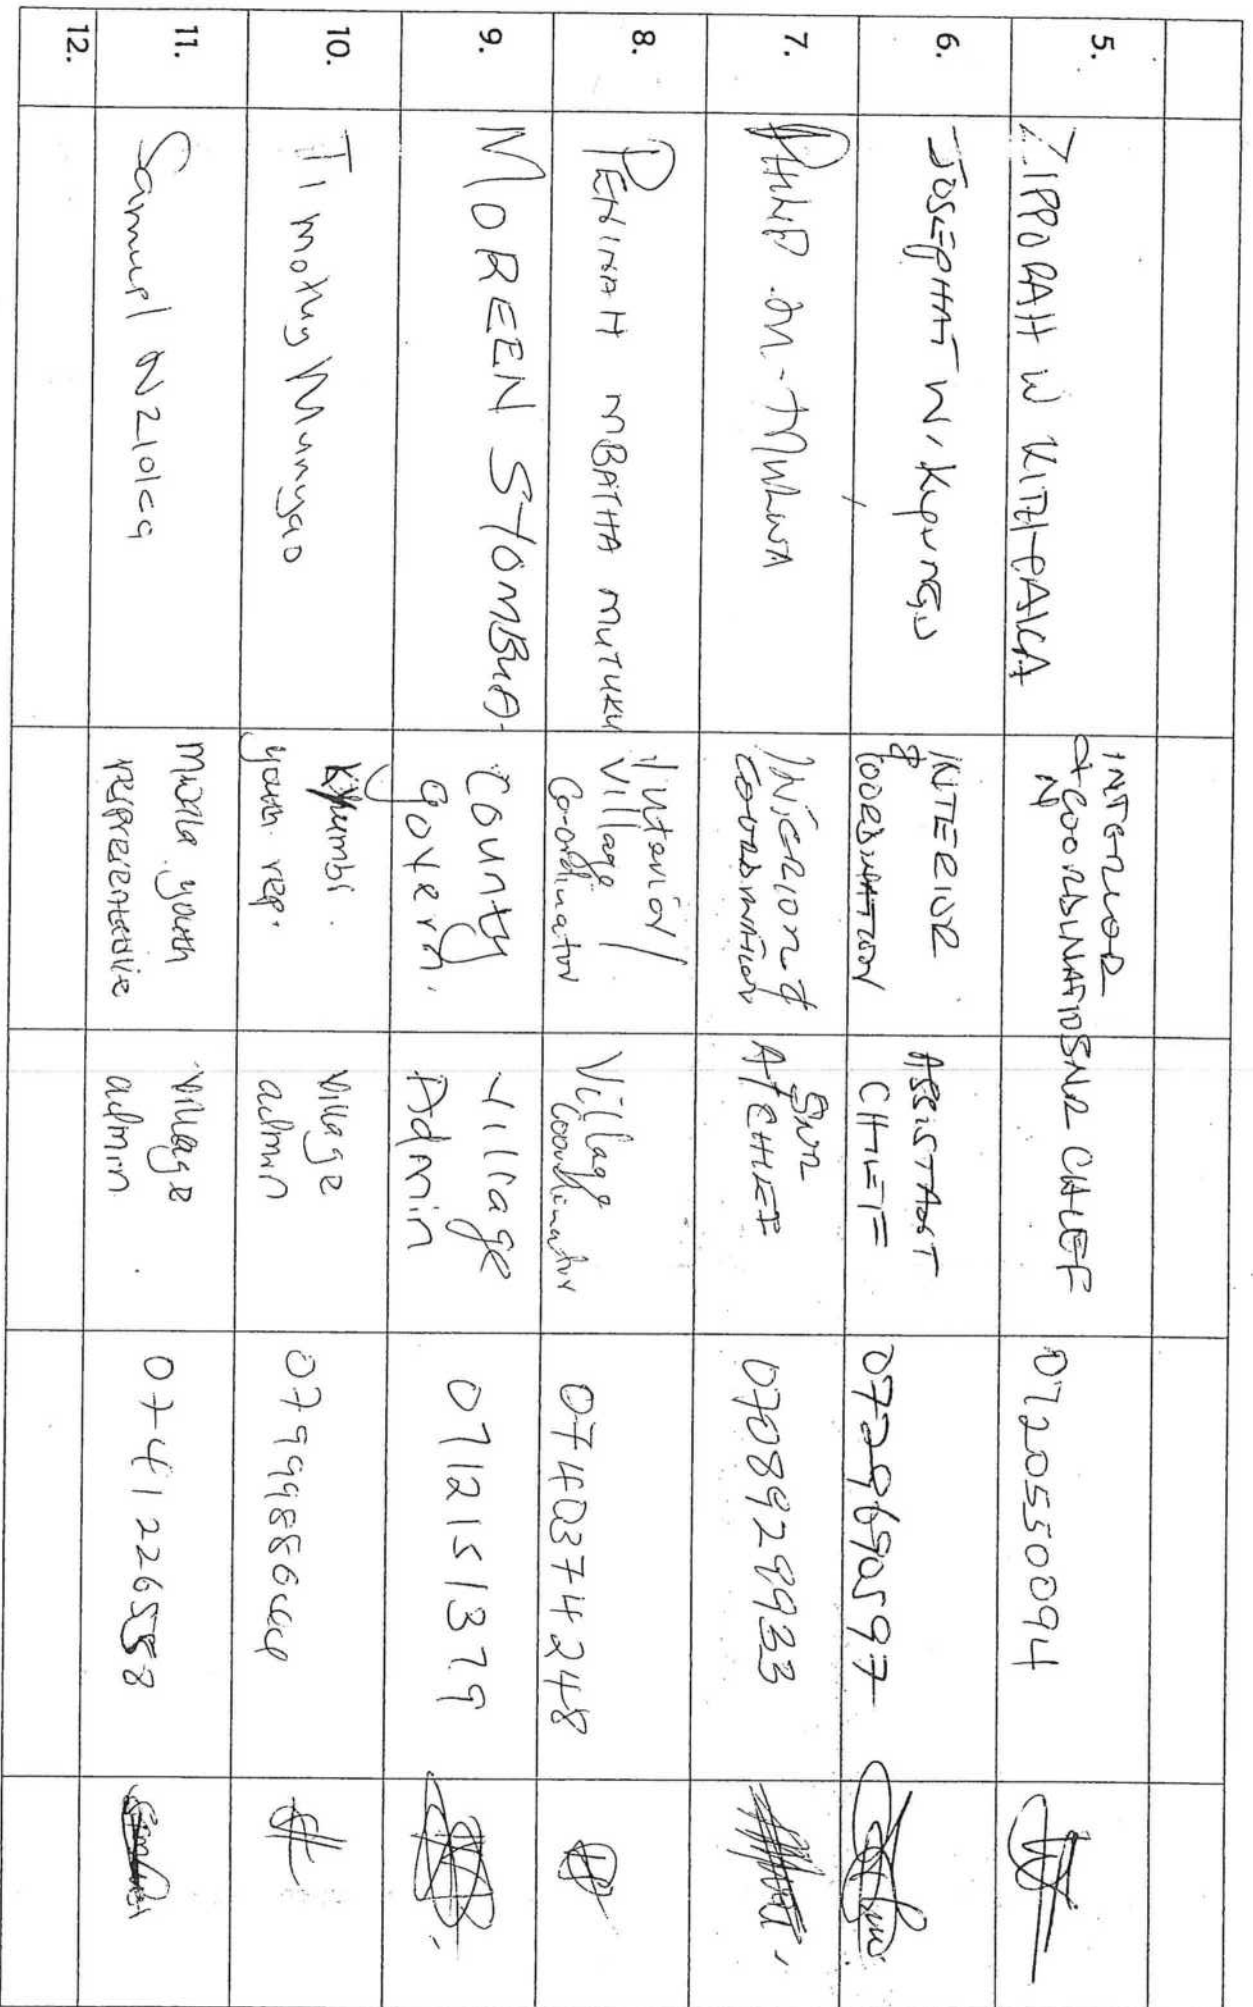 5. ZIPPORAH W KITHAKA INTERIOR & COORDINATION SNR CHIEF 0720550094
6. JOSEPHAT W. INTERIOR & COORDINATION ASSISTANT CHIEF 0729690597
7. PHILIP M. MULWA INTERIOR & COORDINATION SNR A/CHIEF 0708929933
8. PENINAH MBATHA MUTUKU Interior/ Village Co-ordinator Village Coordinator 0740374248
9. MOREEN SYOMBUA County govern. village Admin 0712151379
10. Timothy Munyao youth rep. village admin
11. Samuel Nzioka youth village admin 0741226558
12.